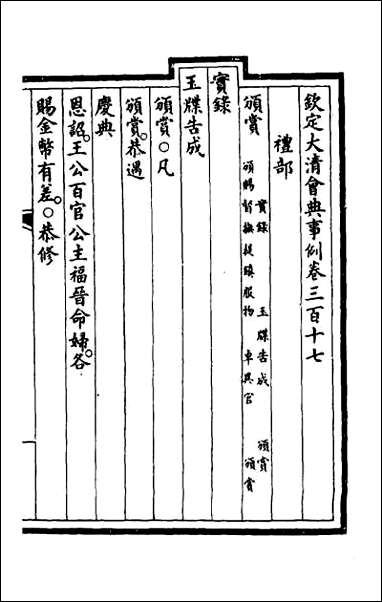 欽定大清會典事例卷三百十七
禮部
頒賞 實錄 玉牒告成 頒賞
頒賜督撫提鎮服物 卓異官 頒賞
實錄
玉牒告成
頒賞○凡
頒賞。恭遇
慶典
恩詔。王公百官公主福晉命婦。各
賜金幣有差。○恭修